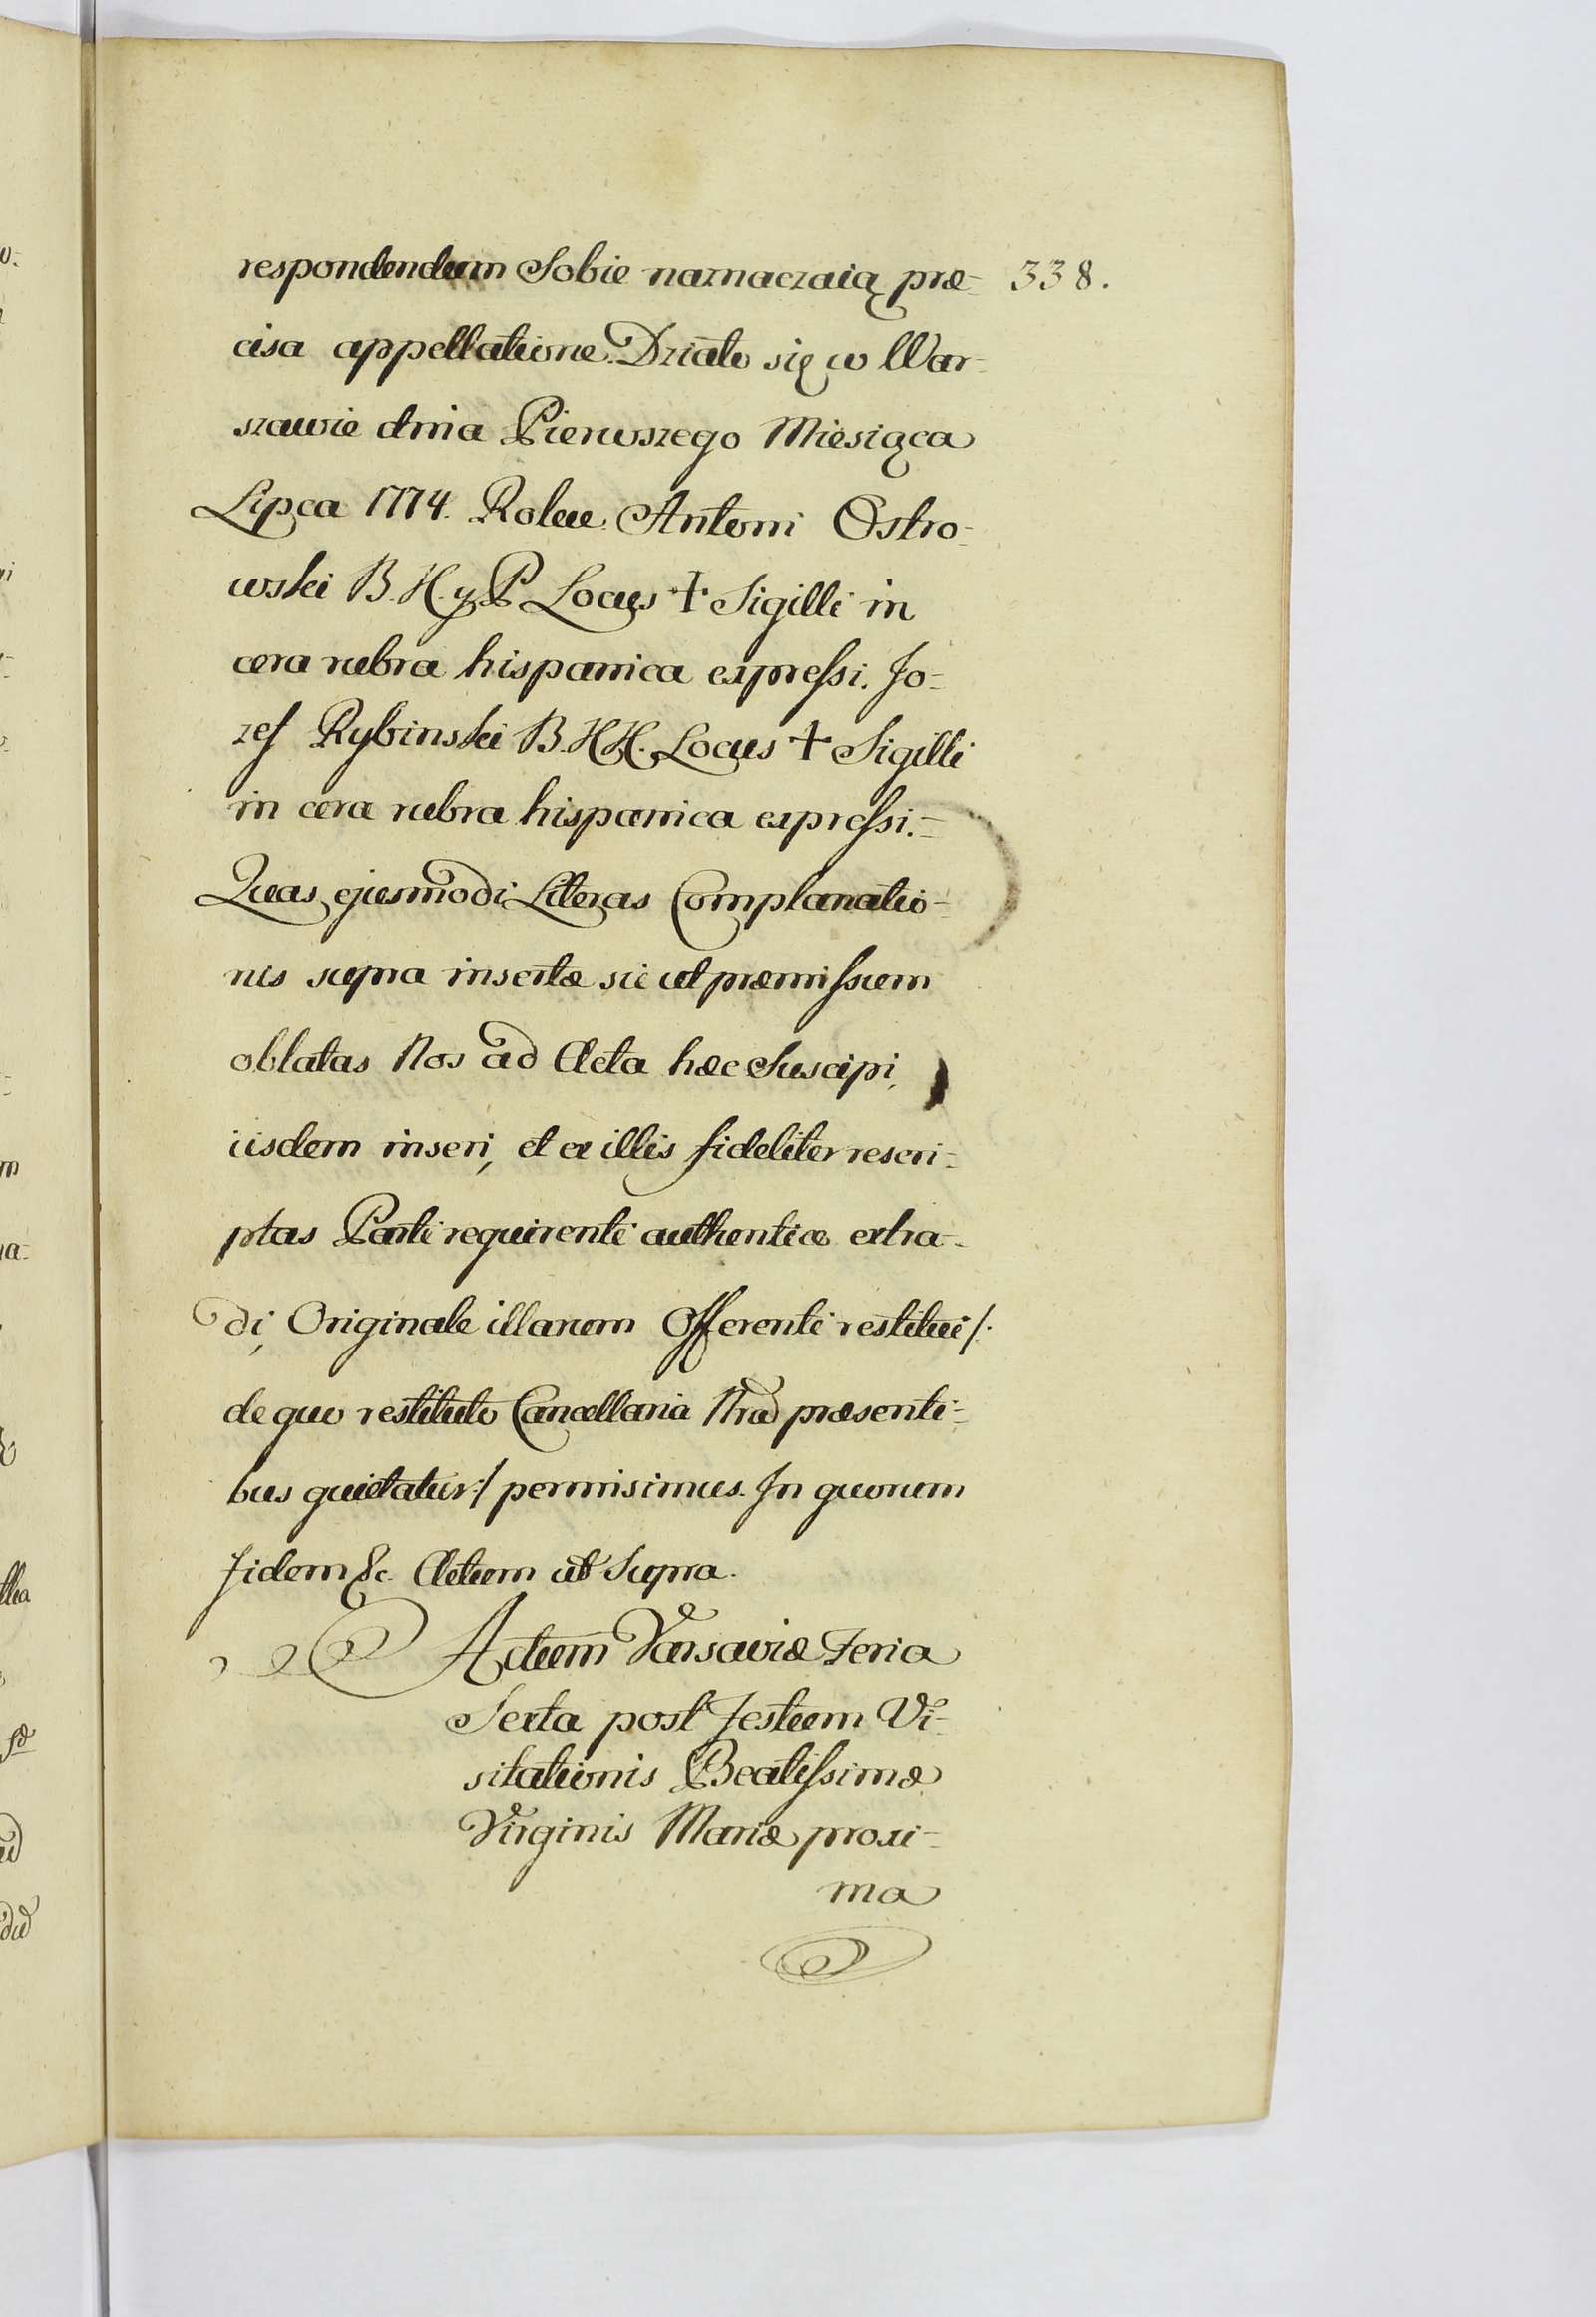 respondendum Sobie naznaczaią præ= 338.
cisa appellatione. Działo się w War=
szawie dnia Pierwszego Miesiąca
Lipca 1774. Roku. Antoni Ostro=
wski B. K. y P. Locus + Sigilli in
cera rubra hispanica expressi. Jo=
zef Rybinski B. KK. Locus + Sigilli
in cera rubra hispanica expressi.=
Quas ejusmodi Literas Complanatio=
nis supra insertæ sic ut præmissum
oblatas Nos ad Acta hæc Suscipi,
iisdem inseri, et ex illis fideliter rescri=
ptas Parti requirenti authentice extra=
di, Originale illarum Offerenti restitui /:
de quo restituto Cancellaria Nra præsenti=
bus quietatur :/ permisimus. In quorum
fidem &c. Actum ut Supra.
Actum Varsaviæ Feria
Sexta post Festum Vi=
sitationis Beatissimæ
Virginis Mariæ proxi=
ma